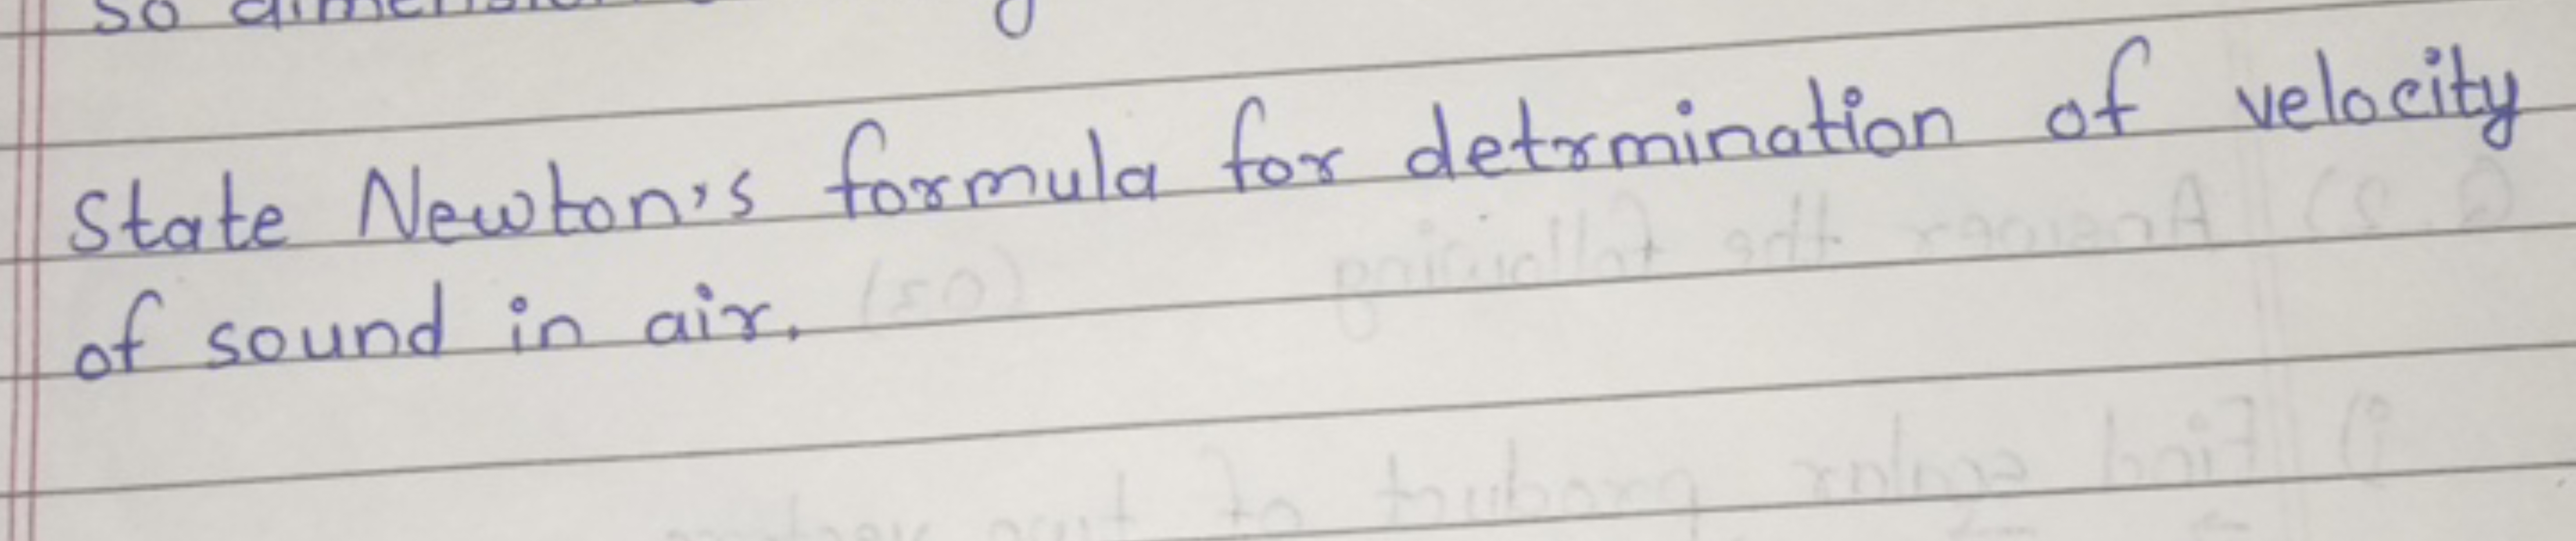 so
State Newton's formula for detrmination of velocity
of sound in air.